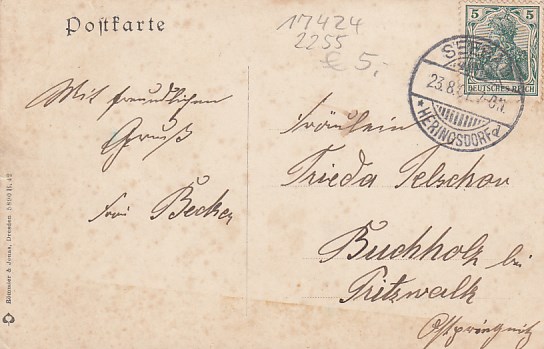 Postkarte
17424
2255
€ 5,-
5 5
DEUTSCHES REICH
23.8.
* HERINGSDORF *
Mit freundlichen
Gruß
Becker
Fräulein
Frieda Telschow
Buchholz bei
Pritzwalk
Ostprignitz
Römmler & Jonas, Dresden